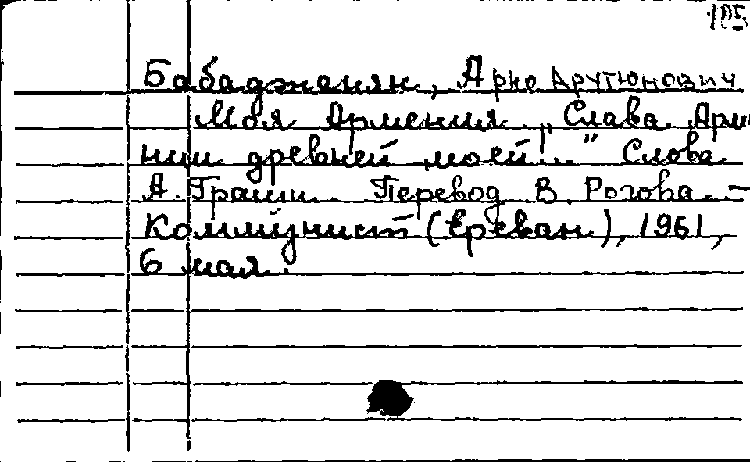 105
Бабаджанян, Арно Арутюнович
Моя Армения. „Слава Арме
нии древней моей!.." Слова
А. Граши. Перевод В. Рогова. –
Коммунист (Ереван), 1961,
6 мая.